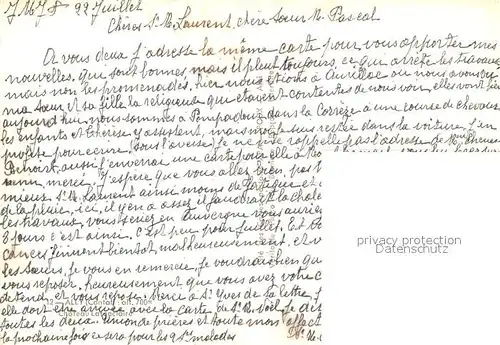 J M J F 22 Juillet
Chères Sr M. Laurent, chère Soeur M. Pascal
A vous deux j'adresse la même carte pour vous apporter mes
nouvelles, que sont bonnes, mais il pleut toujours, ce qui arrête les travaux
mais non les promenades. hier nous étions à Aurillac où nous avons vu
ma sœur et sa fille la religieuse que étaient contentes de nous voir elles vont bien
aujourd'hui nous sommes à Pompadour dans la Corrèze à une course de chevaux
les enfants et Thérèse y assistent, mais moi je suis restée dans la voiture j'en
profite pour écrire (sous l'averse) je ne me rappelle pas l'adresse de M. Thérèse
aussi j'enverrai une carte pour elle à
merci. J'espère que vous allez bien, pas
mieux Sr M. Laurent ainsi moins de fatigue et
de la pluie, ici, il y en a assez, il faudrait la chale
les travaux, vous seriez en Auvergne vous auriez
8 jours c'est ainsi. C'est peu pour Juillet. Et
cances finiront bientôt, malheureusement, et v
les Sœurs, je vous en remercie, je voudrais bien qu
vous reposer. heureusement que vous avez votre
detend et vous repose. Merci à Sr Yves de sa lettre
elle doit être arrivée avec la carte de Sr M. Noël, je dis
toutes les deux. Union de prières et toute mon affect
la prochaine fois ce sera pour les 2 Srs malades
privacy protection
Datenschutz
ALLY (Cantal) alt. 700m
Château